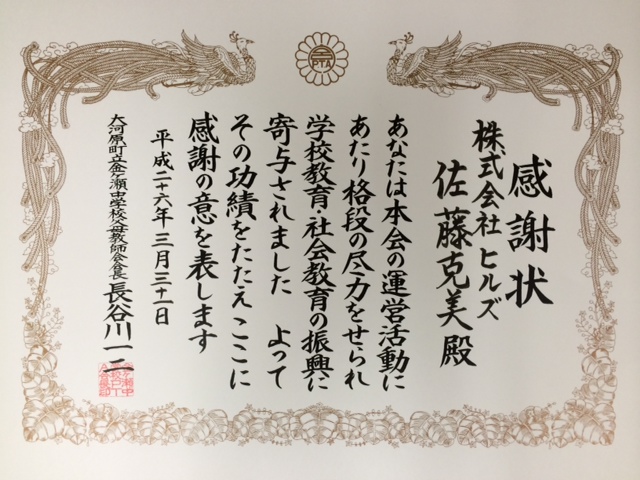 感謝状
株式会社 ヒルズ
佐藤克美殿
あなたは本会の運営活動に
あたり格段の尽力をせられ
学校教育・社会教育の振興に
寄与されました よって
その功績をたたえ ここに
感謝の意を表します
平成二十六年三月三十一日
大河原町立金ケ瀬中学校父母教師会会長 長谷川一二
PTA